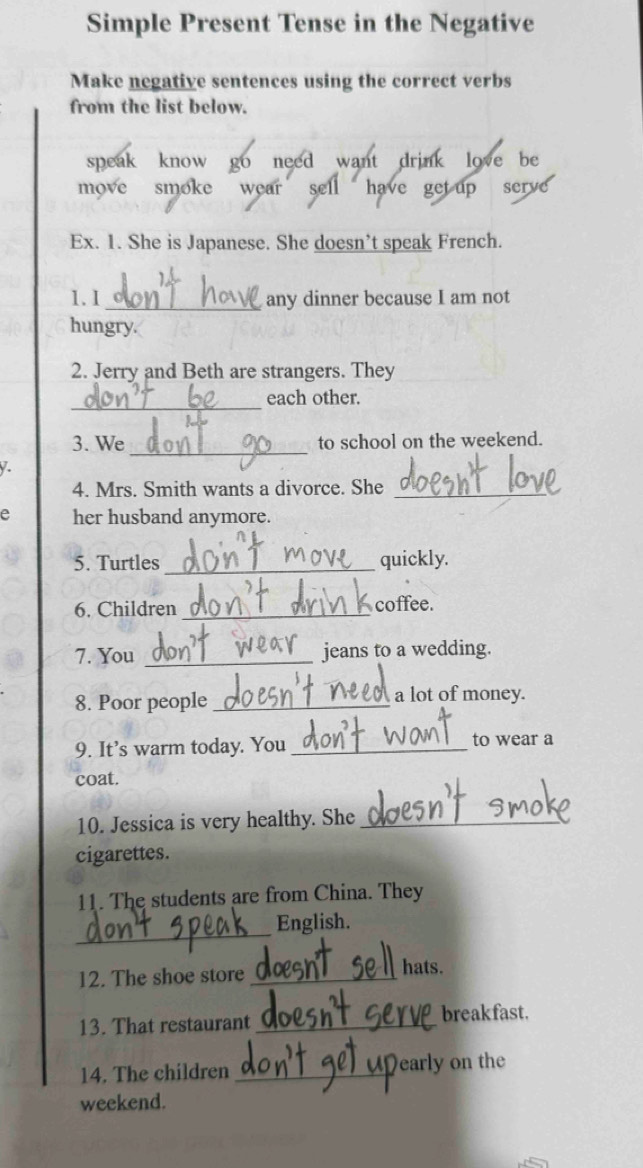 Simple Present Tense in the Negative
Make negative sentences using the correct verbs
from the list below.
speak know go need want drink love be
move smoke wear sell have get up serve
Ex. 1. She is Japanese. She doesn't speak French.
1. I don't have any dinner because I am not
hungry.
2. Jerry and Beth are strangers. They
don't be each other.
3. We don't go to school on the weekend.
y.
4. Mrs. Smith wants a divorce. She doesn't love
e her husband anymore.
5. Turtles don't move quickly.
6. Children don't drink coffee.
7. You don't wear jeans to a wedding.
8. Poor people doesn't need a lot of money.
9. It's warm today. You don't want to wear a
coat.
10. Jessica is very healthy. She doesn't smoke
cigarettes.
11. The students are from China. They
don't speak English.
12. The shoe store doesn't sell hats.
13. That restaurant doesn't serve breakfast.
14. The children don't get up early on the
weekend.